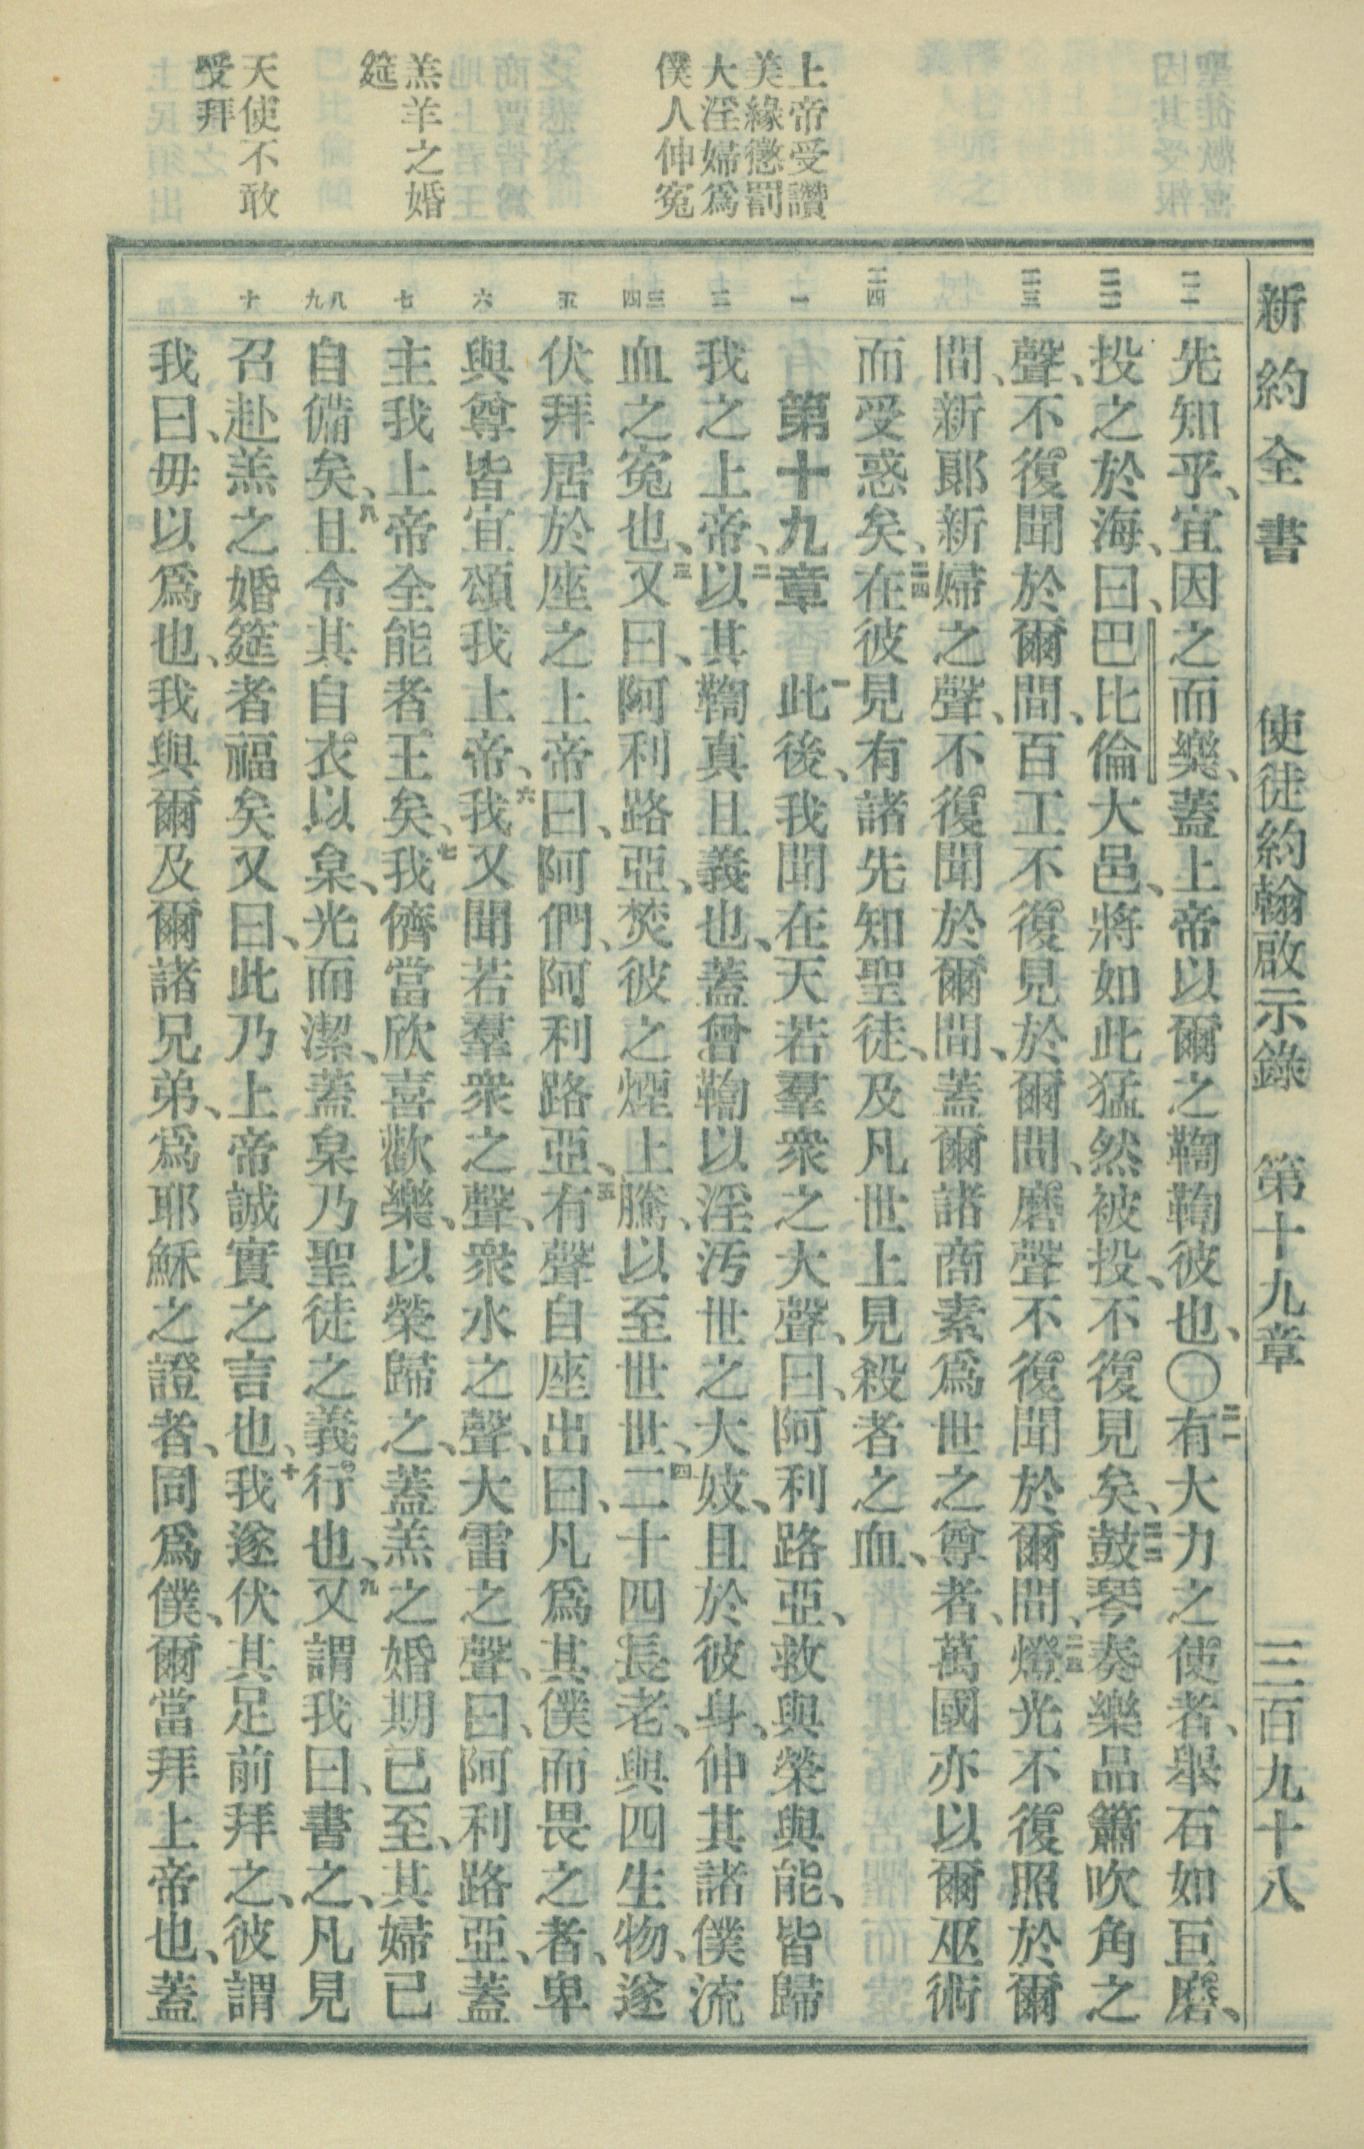 新約全書　使徒約翰啟示錄　第十九章　三百九十八
上帝受讚
美緣懲罰
大淫婦爲
僕人伸冤
羔羊之婚
筵
天使不敢
受拜
二一
二二
二三
二四
一
二
三四
五
六
七
八九
十
先知乎、宜因之而樂、蓋上帝以爾之鞫鞫彼也、〇二一有大力之使者、舉石如巨磨、
投之於海、曰、巴比倫大邑、將如此猛然被投、不復見矣、二二鼓琴奏樂品簫吹角之
聲、不復聞於爾間、百工不復見於爾間、磨聲不復聞於爾間、二三燈光不復照於爾
間、新郞新婦之聲、不復聞於爾間、蓋爾諸商素爲世之尊者、萬國亦以爾巫術
而受惑矣、二四在彼見有諸先知聖徒、及凡世上見殺者之血、
第十九章　一此後、我聞在天若羣衆之大聲、曰、阿利路亞、救與榮與能、皆歸
我之上帝、二以其鞫真且義也、蓋曾鞫以淫污世之大妓、且於彼身、伸其諸僕流
血之冤也、三又曰、阿利路亞、焚彼之煙上騰、以至世世、四二十四長老、與四生物、遂
伏拜居於座之上帝曰、阿們、阿利路亞、五有聲自座出曰、凡爲其僕而畏之者、卑
與尊皆宜頌我上帝、六我又聞若羣衆之聲、衆水之聲、大雷之聲、曰、阿利路亞、蓋
主我上帝全能者王矣、七我儕當欣喜歡樂、以榮歸之、蓋羔之婚期已至、其婦已
自備矣、八且令其自衣以枲、光而潔、蓋枲乃聖徒之義行也、九又謂我曰、書之、凡見
召赴羔之婚筵者福矣又曰、此乃上帝誠實之言也、十我遂伏其足前拜之、彼謂
我曰、毋以爲也、我與爾及爾諸兄弟、爲耶穌之證者、同爲僕、爾當拜上帝也、蓋